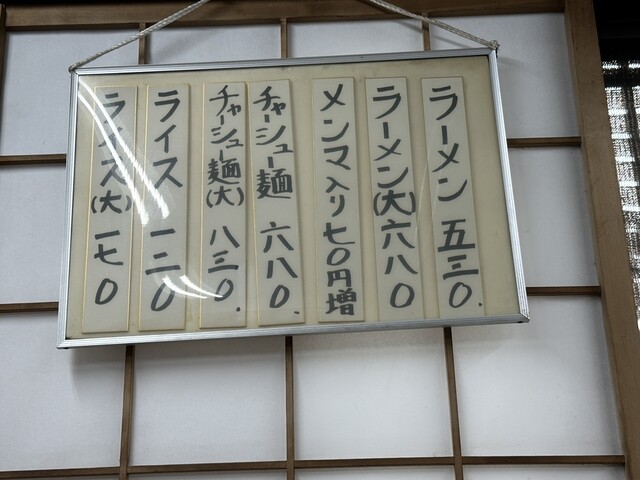 ラーメン 五三〇.
ラーメン(大) 六八〇
メンマ入り 七〇円増
チャーシュー麺 六八〇.
チャーシュー麺(大) 八三〇.
ライス 一二〇
ライス(大) 一七〇